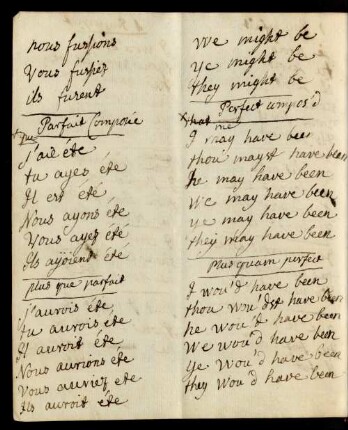 nous fussions
Vous fussiez
ils furent
Parfait Composé
que
J'aie été
tu ayes été
Il est été
Nous ayons été
Vous ayez été
Ils ayoient été
plus que parfait
j'aurois éte
tu aurois éte
Il auroit éte
Nous aurions éte
Vous auriez éte
Ils auroit éte
We might be
Ye might be
they might be
Perfect compos'd
that me
I may have been
thou mayst have been
he may have been
We may have been
ye may have been
they may have been
plus quam perfect
I wou'd have been
thou wou'dst have been
he wou'd have been
We wou'd have been
Ye wou'd have been
they wou'd have been